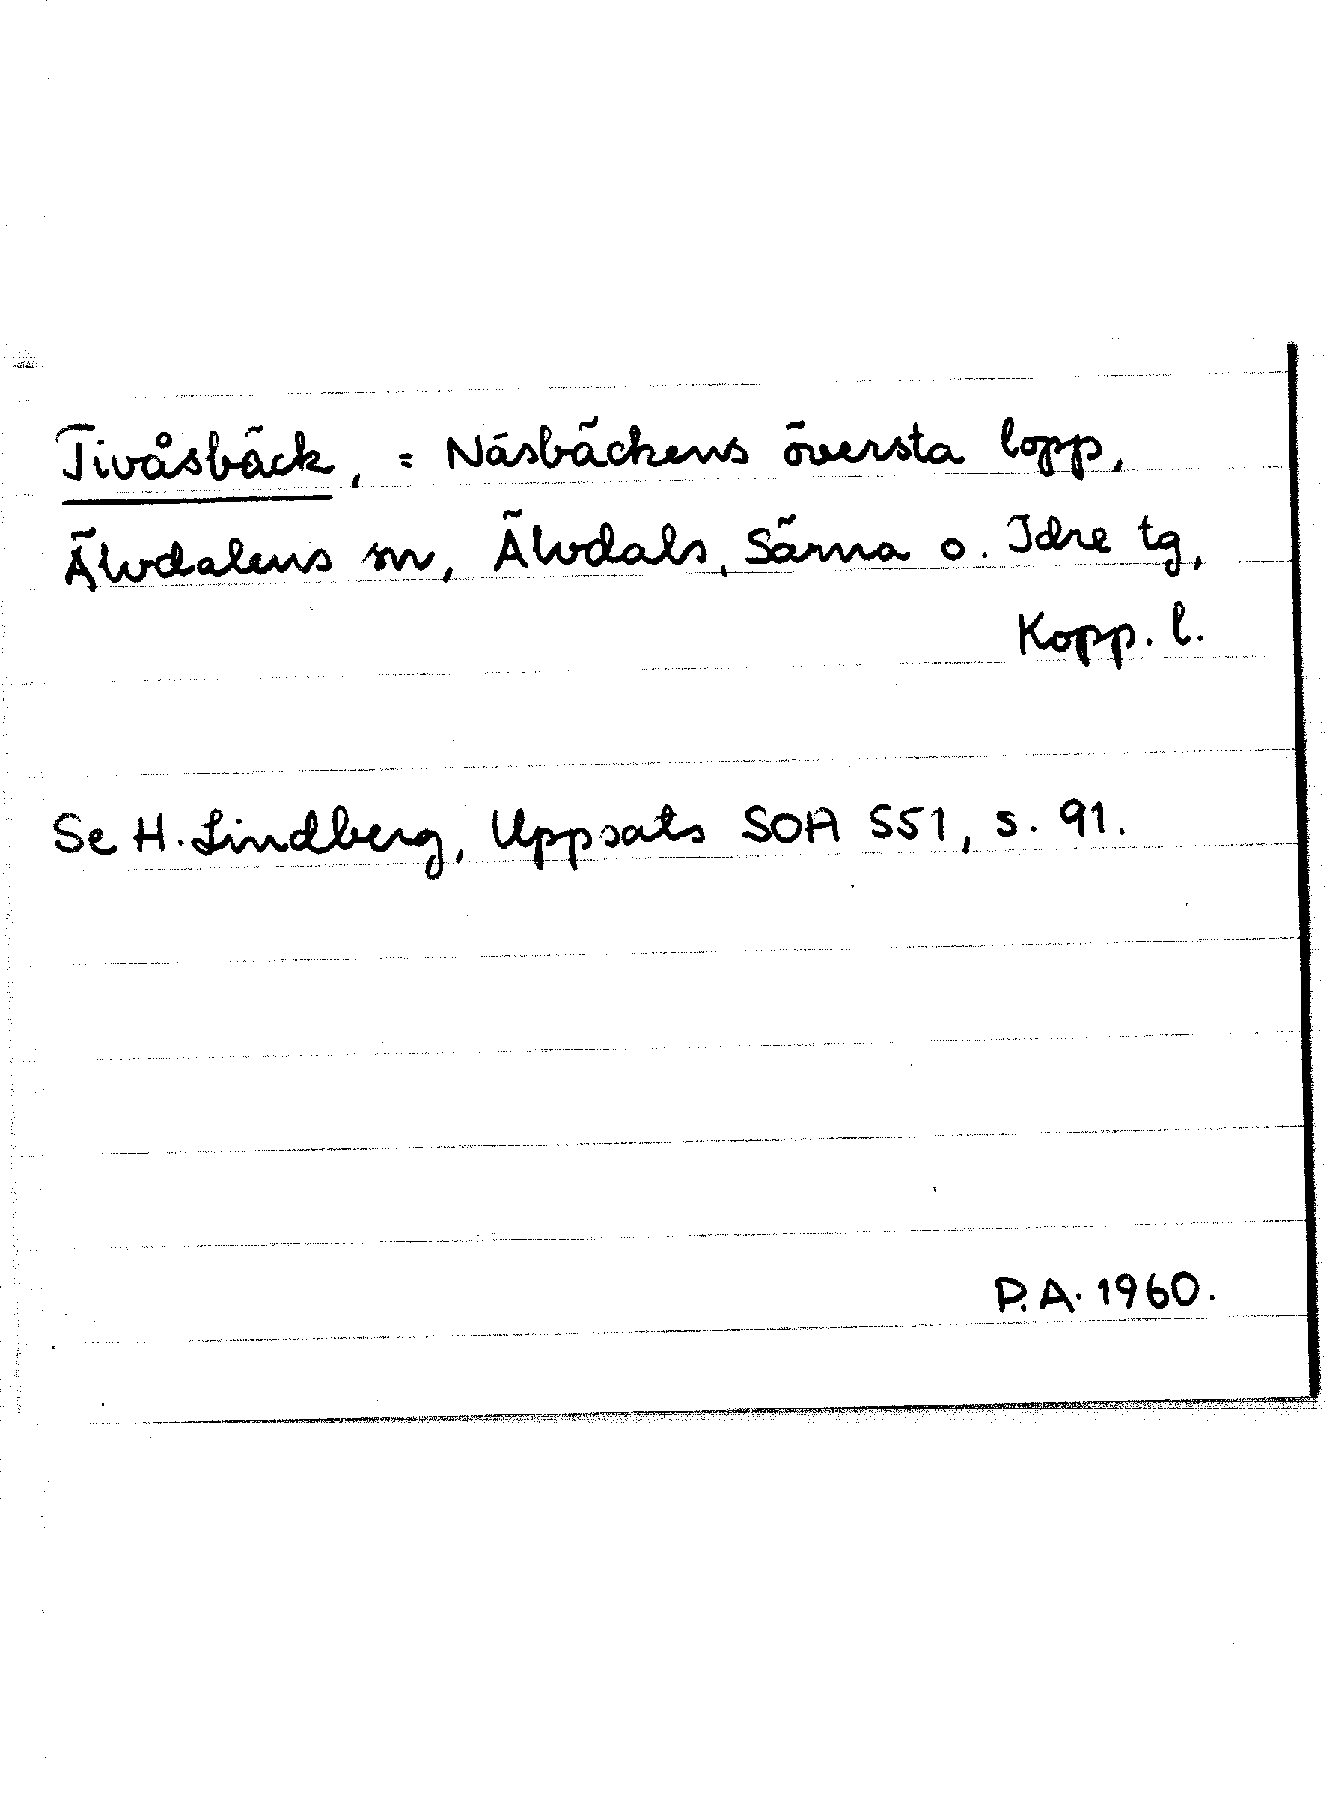 Tivåsbäck, = Näsbäckens översta lopp,
Älvdalens sn, Älvdals, Särna o. Idre tg,
Kopp. l.
Se H. Lindberg, Uppsats SOA 551, s. 91.
P.A. 1960.